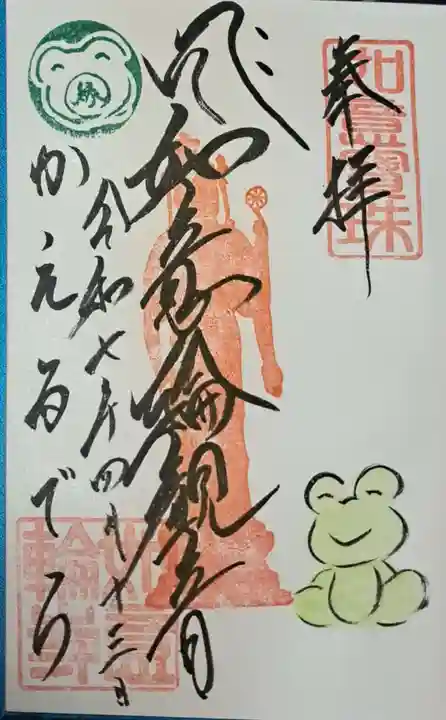 奉拝
如意寶珠
如意輪観音
令和七年四月十三日
かえるでら
如意
輪寺